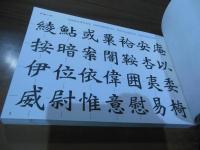 綾鮎或粟袷安庵
按暗案闇鞍杏以
伊位依偉囲夷委
威尉惟意慰易椅